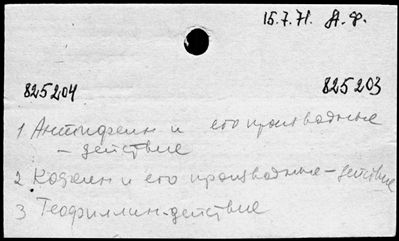 15.7.71. А.Ф.
825204 825203
1 Антифеин и его производные
- действие
2 Кофеин и его производные - действие
3 Теофиллин - действие